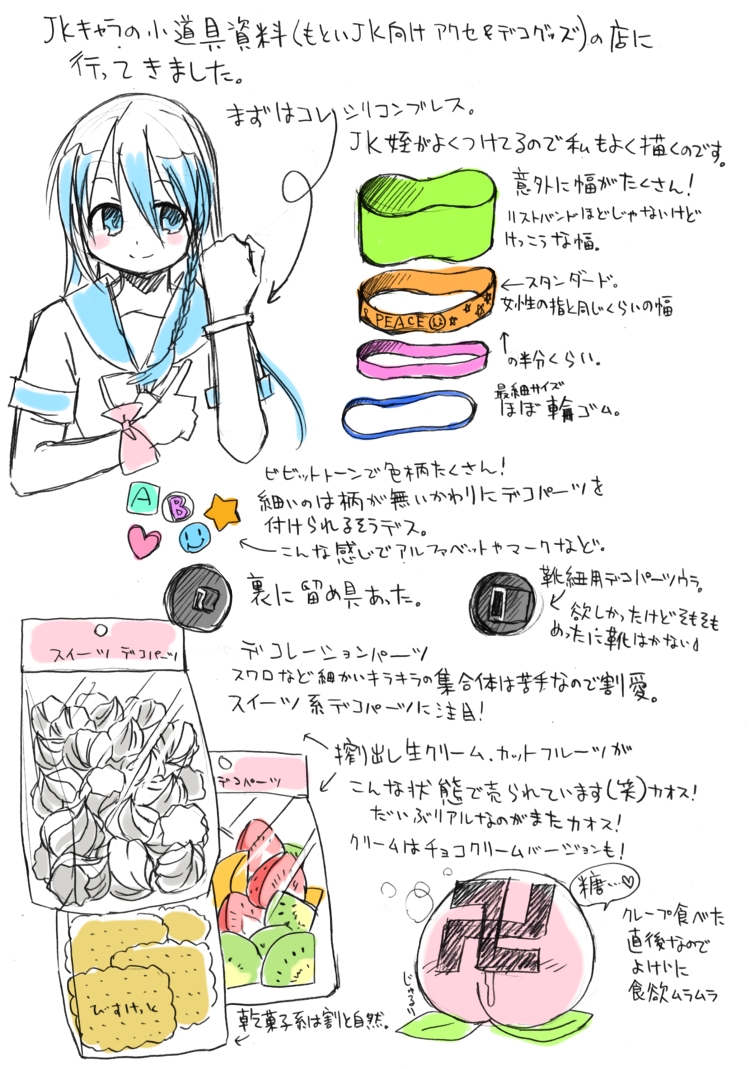 JKキャラの小道具資料(もといJK向けアクセ&デコグッズ)の店に
行ってきました。
まずはコレ シリコンブレス。
JK姪がよくつけてるので私もよく描くのです。
意外に幅がたくさん!
リストバンドほどじゃないけど
けっこうな幅。
←スタンダード。
女性の指と同じくらいの幅
PEACE
↑の半分くらい。
最細サイズ
ほぼ輪ゴム。
ビビットトーンで色柄たくさん!
細いのは柄が無いかわりにデコパーツを
付けられるそうデス。
A B
←こんな感じでアルファベットやマークなど。
裏に留め具あった。
靴紐用デコパーツウラ。
欲しかったけどそもそも
めったに靴はかない」
スイーツ デコパーツ
デコレーションパーツ
スワロなど細かいキラキラの集合体は苦手なので割愛。
スイーツ系デコパーツに注目!
搾り出し生クリーム、カットフルーツが
こんな状態で売られています(笑)カオス!
だいぶリアルなのがまたカオス!
クリームはチョコクリームバージョンも!
デコパーツ
糖…♡
クレープ食べた
直後なので
よけいに
食欲ムラムラ
じゅるり
びすけっと
乾菓子系は割と自然。